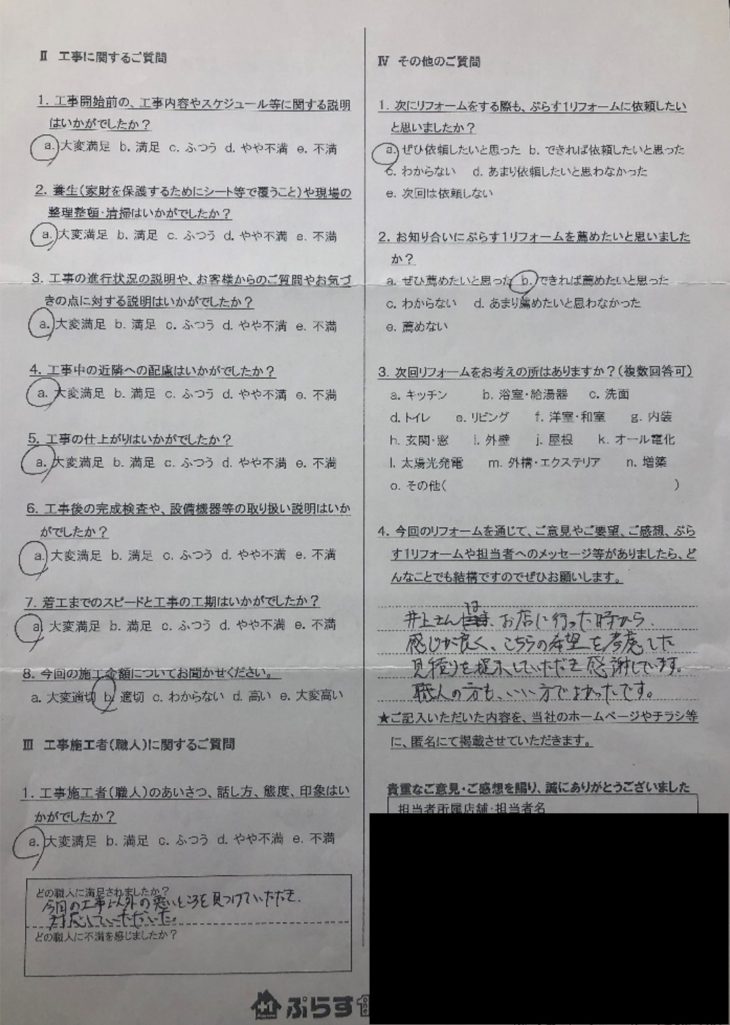 Ⅱ 工事に関するご質問
1. 工事開始前の、工事内容やスケジュール等に関する説明
はいかがでしたか?
a. 大変満足 b. 満足 c. ふつう d. やや不満 e. 不満
2. 養生(家財を保護するためにシート等で覆うこと)や現場の
整理整頓・清掃はいかがでしたか?
a. 大変満足 b. 満足 c. ふつう d. やや不満 e. 不満
3. 工事の進行状況の説明や、お客様からのご質問やお気づ
きの点に対する説明はいかがでしたか?
a. 大変満足 b. 満足 c. ふつう d. やや不満 e. 不満
4. 工事中の近隣への配慮はいかがでしたか?
a. 大変満足 b. 満足 c. ふつう d. やや不満 e. 不満
5. 工事の仕上がりはいかがでしたか?
a. 大変満足 b. 満足 c. ふつう d. やや不満 e. 不満
6. 工事後の完成検査や、設備機器等の取り扱い説明はいか
がでしたか?
a. 大変満足 b. 満足 c. ふつう d. やや不満 e. 不満
7. 着工までのスピードと工事の工期はいかがでしたか?
a. 大変満足 b. 満足 c. ふつう d. やや不満 e. 不満
8. 今回の施工金額についてお聞かせください。
a. 大変適切 b. 適切 c. わからない d. 高い e. 大変高い
Ⅲ 工事施工者(職人)に関するご質問
1. 工事施工者(職人)のあいさつ、話し方、態度、印象はい
かがでしたか?
a. 大変満足 b. 満足 c. ふつう d. やや不満 e. 不満
どの職人に満足されましたか?
今回の工事以外の悪いところを見つけていただき、
対応していただいた。
どの職人に不満を感じましたか?
Ⅳ その他のご質問
1. 次にリフォームをする際も、ぷらす1リフォームに依頼したい
と思いましたか?
a. ぜひ依頼したいと思った b. できれば依頼したいと思った
c. わからない d. あまり依頼したいと思わなかった
e. 次回は依頼しない
2. お知り合いにぷらす1リフォームを薦めたいと思いました
か?
a. ぜひ薦めたいと思った b. できれば薦めたいと思った
c. わからない d. あまり薦めたいと思わなかった
e. 薦めない
3. 次回リフォームをお考えの所はありますか?(複数回答可)
a. キッチン b. 浴室・給湯器 c. 洗面
d. トイレ e. リビング f. 洋室・和室 g. 内装
h. 玄関・窓 i. 外壁 j. 屋根 k. オール電化
l. 太陽光発電 m. 外構・エクステリア n. 増築
o. その他( )
4. 今回のリフォームを通じて、ご意見やご要望、ご感想、ぷら
す1リフォームや担当者へのメッセージ等がありましたら、ど
んなことでも結構ですのでぜひお願いします。
井上さんは、お店に行った時から
感じが良く、こちらの希望を考慮した
見積りを提示していただき感謝しています。
職人の方も、いい方でよかったです。
★ご記入いただいた内容を、当社のホームページやチラシ等
に、匿名にて掲載させていただきます。
貴重なご意見・ご感想を賜り、誠にありがとうございました
担当者所属店舗・担当者名
+1 ぷらす